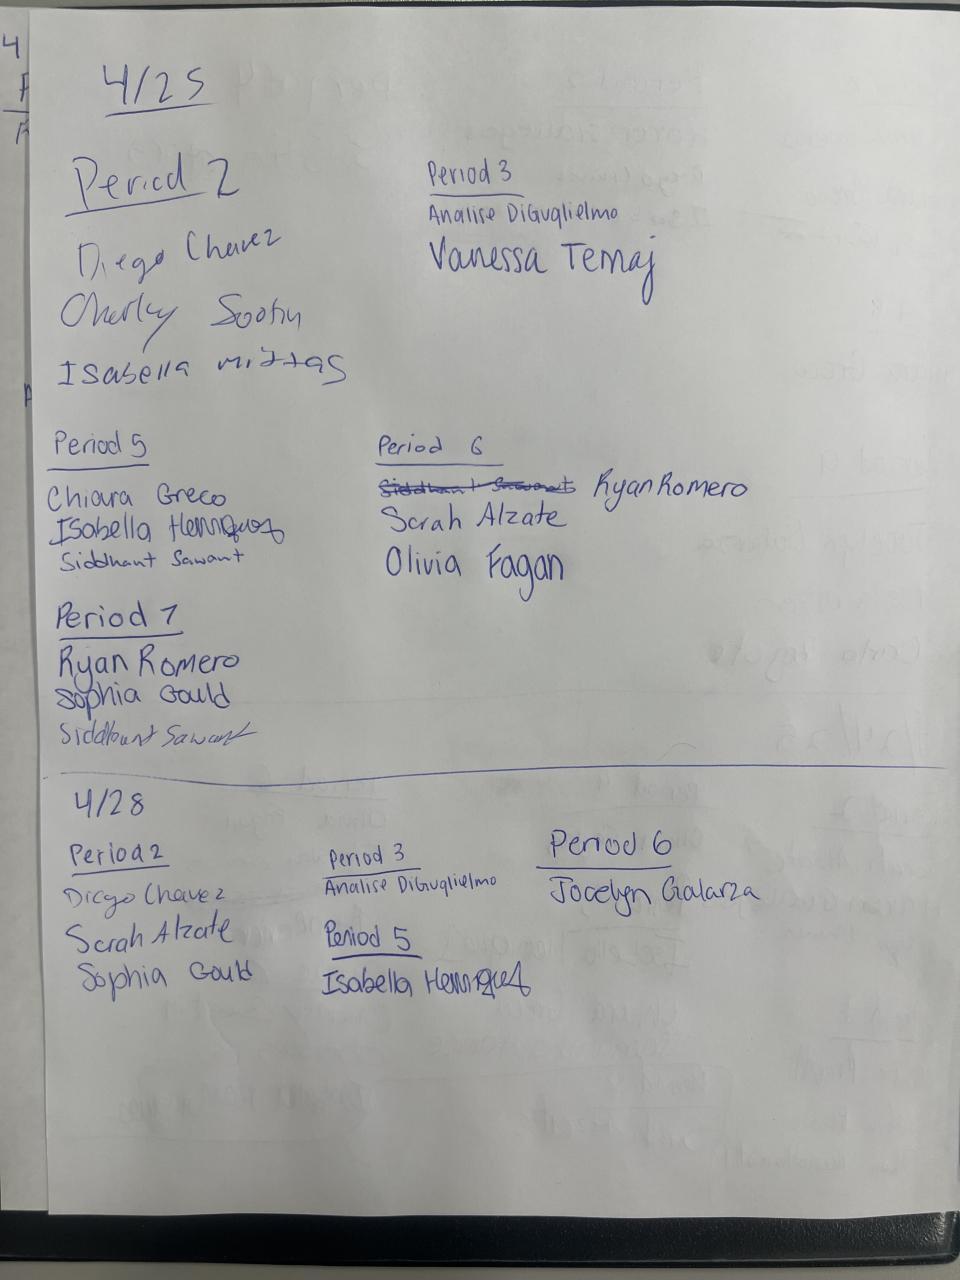 4/25
Period 2
Diego Chavez
Charley
Isabella mittas
Period 3
Analise DiGuglielmo
Vanessa Temaj
Period 5
Chiara Greco
Isabella Henriquez
Siddhant Sawant
Period 6
Siddhant Sawant Ryan Romero
Sarah Alzate
Olivia Fagan
Period 7
Ryan Romero
Sophia Gould
Siddhant Sawant
4/28
Period 2
Diego Chavez
Sarah Alzate
Sophia Gould
Period 3
Analise DiGuglielmo
Period 5
Isabella Henriquez
Period 6
Jocelyn Galarza